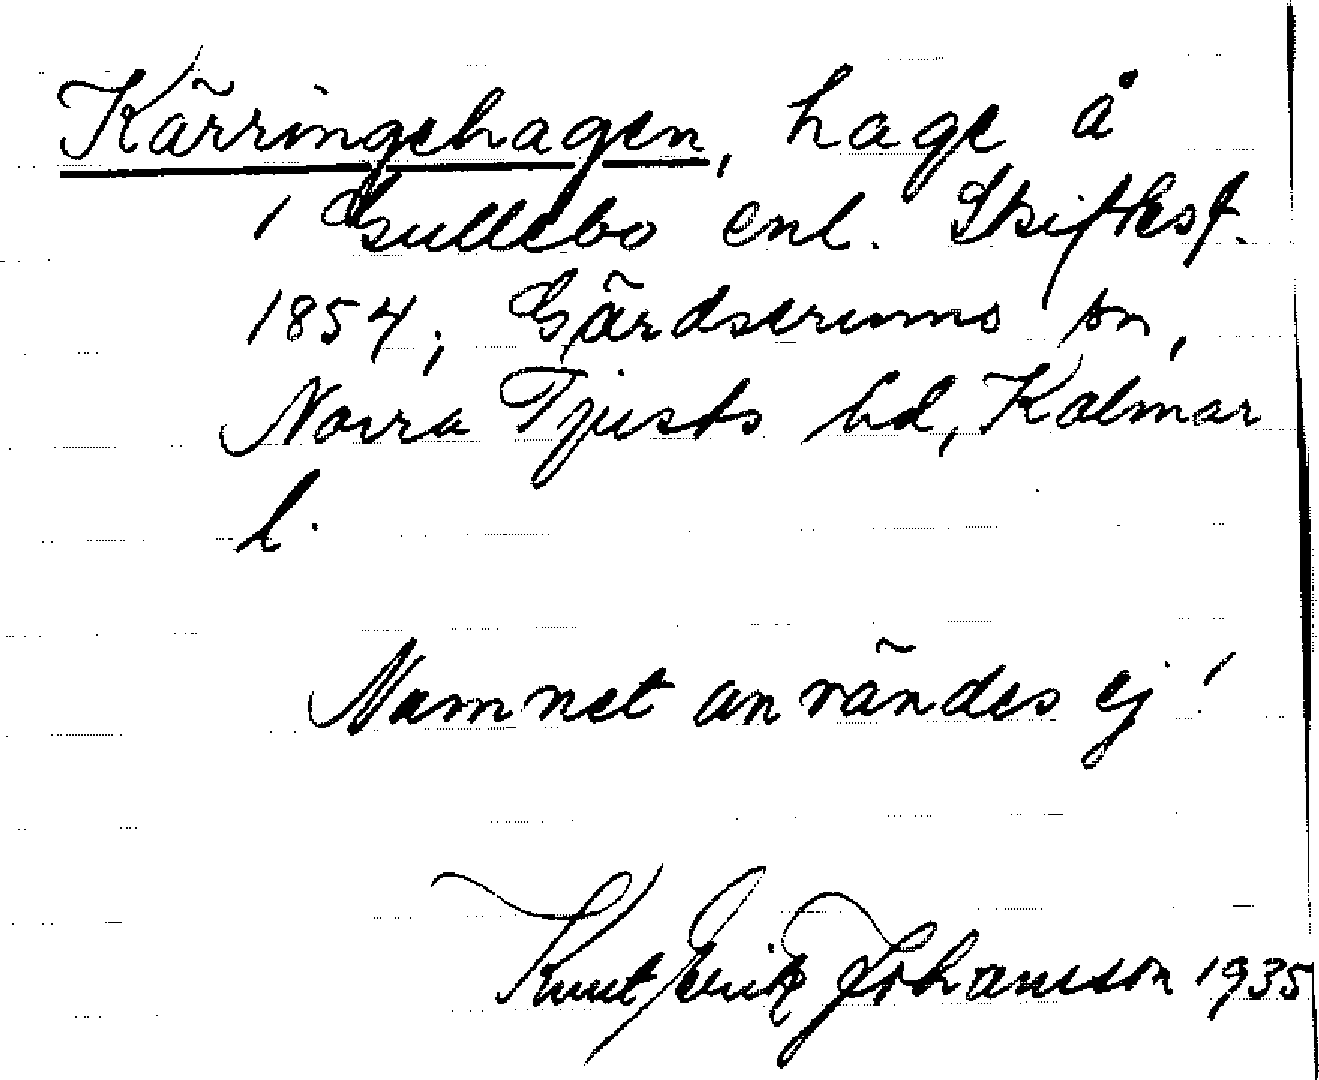 Kärringehagen, hage å
1 Gullebo enl. Skiftesf.
1854; Gärdserums sn,
Norra Tjusts hd, Kalmar
l.
Namnet användes ej!
Knut Erik Johansson 1935